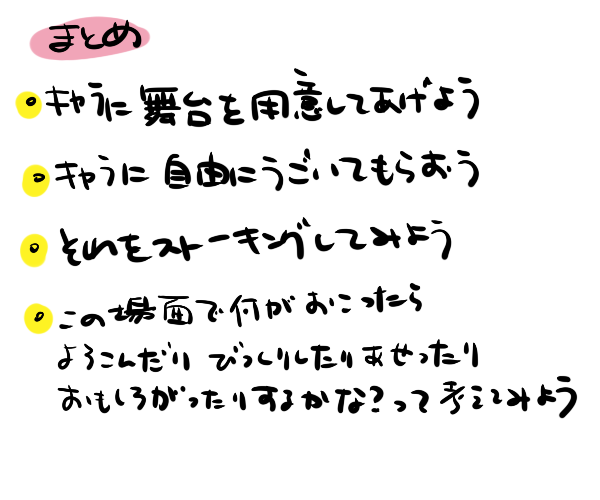 まとめ
キャラに舞台を用意してあげよう
キャラに自由にうごいてもらおう
それをストーキングしてみよう
この場面で何がおこったら
よろこんだり びっくりしたりあせったり
おもしろがったりするかな?って考えてみよう